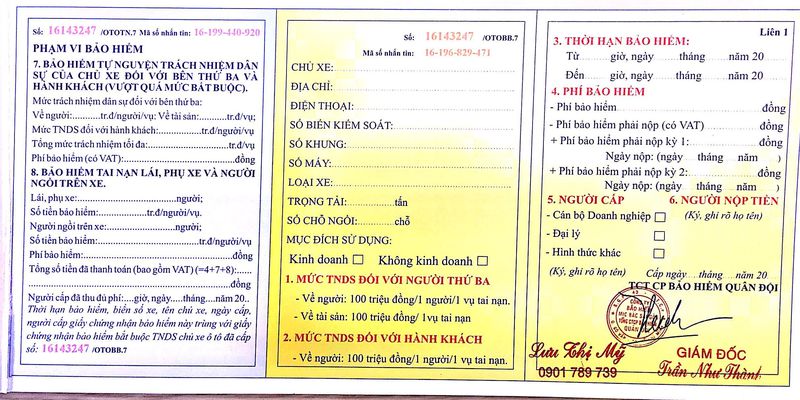 Số: 16143247 /OTOTN.7 Mã số nhắn tin: 16-199-440-920
PHẠM VI BẢO HIỂM
7. BẢO HIỂM TỰ NGUYỆN TRÁCH NHIỆM DÂN
SỰ CỦA CHỦ XE ĐỐI VỚI BÊN THỨ BA VÀ
HÀNH KHÁCH (VƯỢT QUÁ MỨC BẮT BUỘC).
Mức trách nhiệm dân sự đối với bên thứ ba:
Về người:............tr.đ/người/vụ; Về tài sản:............tr.đ/vụ;
Mức TNDS đối với hành khách:............tr.đ/người/vụ
Tổng mức trách nhiệm tối đa:............tr.đ/vụ
Phí bảo hiểm (có VAT):............đồng
8. BẢO HIỂM TAI NẠN LÁI, PHỤ XE VÀ NGƯỜI
NGỒI TRÊN XE.
Lái, phụ xe:............người;
Số tiền bảo hiểm:............tr.đ/người/vụ.
Người ngồi trên xe:............người;
Số tiền bảo hiểm:............tr.đ/người/vụ
Phí bảo hiểm:............đồng
Tổng số tiền đã thanh toán (bao gồm VAT) (=4+7+8):......
............đồng
Người cấp đã thu đủ phí:....giờ, ngày.....tháng......năm 20..
Thời hạn bảo hiểm, biển số xe, tên chủ xe, ngày cấp,
người cấp giấy chứng nhận bảo hiểm này trùng với giấy
chứng nhận bảo hiểm bắt buộc TNDS chủ xe ô tô đã cấp
số: 16143247 /OTOBB.7
Số: 16143247 /OTOBB.7
Mã số nhắn tin: 16-196-829-471
CHỦ XE:............
ĐỊA CHỈ:............
ĐIỆN THOẠI:............
SỐ BIỂN KIỂM SOÁT:............
SỐ KHUNG:............
SỐ MÁY:............
LOẠI XE:............
TRỌNG TẢI:............tấn
SỐ CHỖ NGỒI:............chỗ
MỤC ĐÍCH SỬ DỤNG:
Kinh doanh □ Không kinh doanh □
1. MỨC TNDS ĐỐI VỚI NGƯỜI THỨ BA
- Về người: 100 triệu đồng/1 người/1 vụ tai nạn.
- Về tài sản: 100 triệu đồng/ 1vụ tai nạn
2. MỨC TNDS ĐỐI VỚI HÀNH KHÁCH
- Về người: 100 triệu đồng/1 người/1 vụ tai nạn.
Liên 1
3. THỜI HẠN BẢO HIỂM:
Từ giờ, ngày tháng năm 20
Đến giờ, ngày tháng năm 20
4. PHÍ BẢO HIỂM
- Phí bảo hiểm............đồng
- Phí bảo hiểm phải nộp (có VAT)............đồng
+ Phí bảo hiểm phải nộp kỳ 1:............đồng
Ngày nộp: (ngày tháng năm )
+ Phí bảo hiểm phải nộp kỳ 2:............đồng
Ngày nộp: (ngày tháng năm )
5. NGƯỜI CẤP 6. NGƯỜI NỘP TIỀN
- Cán bộ Doanh nghiệp □ (Ký, ghi rõ họ tên)
- Đại lý □
- Hình thức khác □
(Ký, ghi rõ họ tên) Cấp ngày......tháng......năm 20
TCT CP BẢO HIỂM QUÂN ĐỘI
Lưu Thị Mỹ
0901 789 739
GIÁM ĐỐC
Trần Như Thành